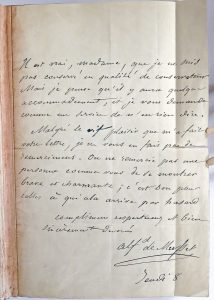 Il est vrai, madame, que je ne suis
pas conservé en qualité de conservateur
Mais je pense qu'il y aura quelque
accommodement, et je vous demande
comme un service de n'en rien dire.
Malgré le vif plaisir que m'a fait
votre lettre, je ne vous en fais pas de
remerciement. On ne remercie pas une
personne comme vous de se montrer
brave et charmante; c'est bon pour
celles à qui cela arrive par hasard
compliments respectueux et bien
sincèrement dévoués
Alf^d de Musset
Jeudi 8